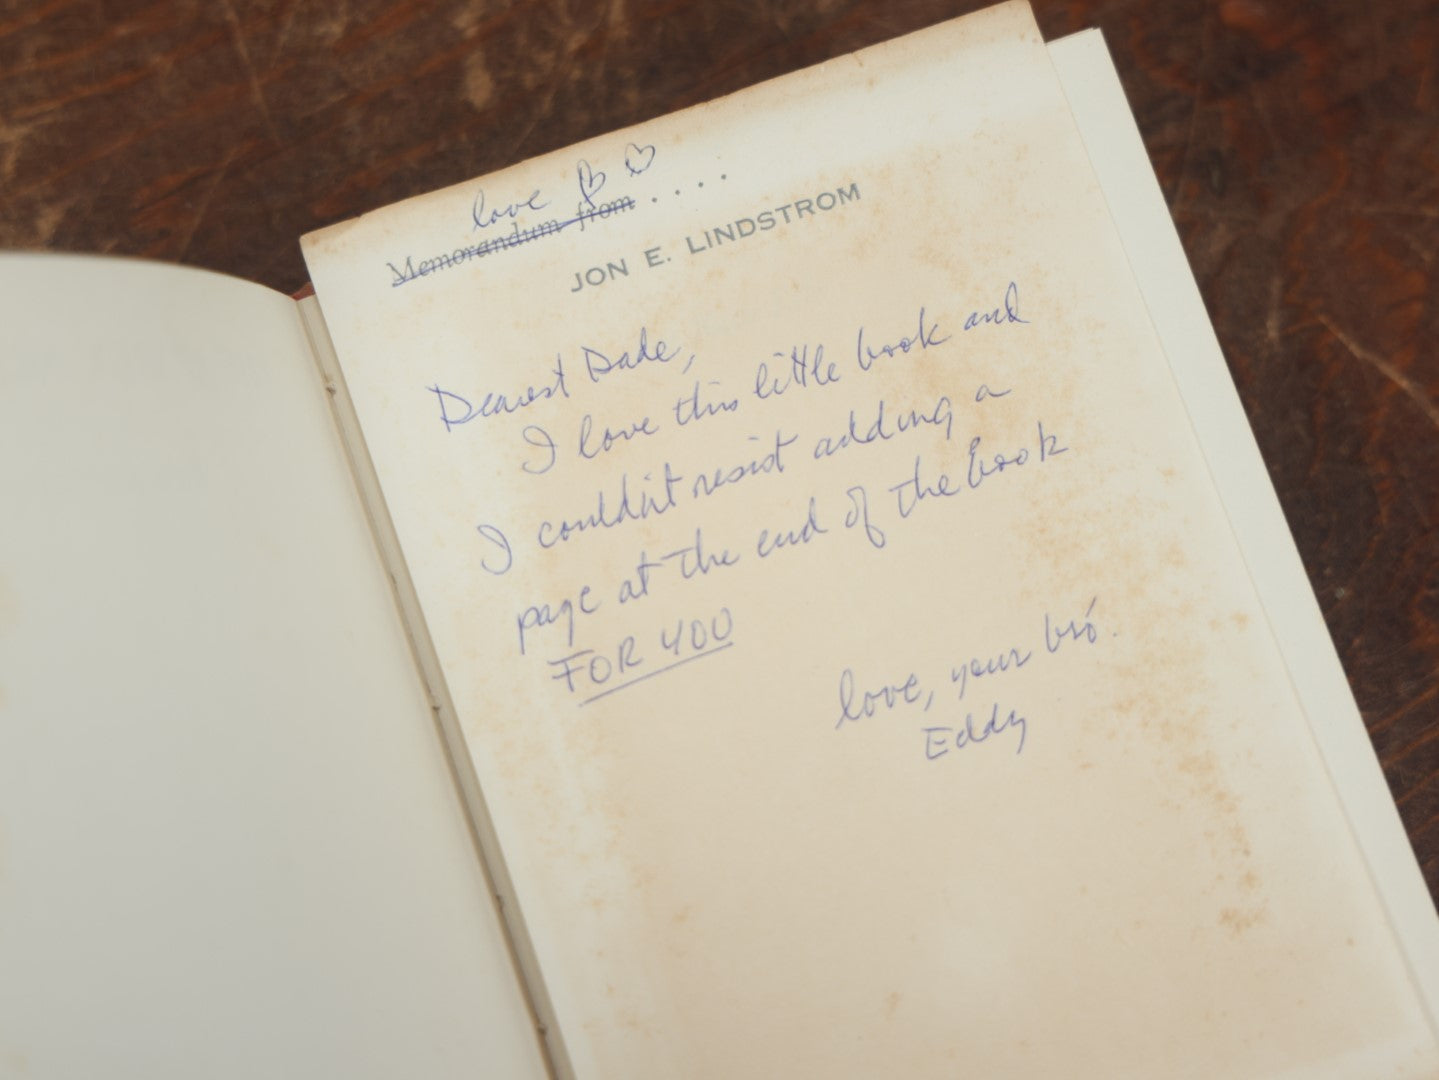 love
Memorandum from ....
JON E. LINDSTROM
Dearest Dade,
I love this little book and
I couldn't resist adding a
page at the end of the book
FOR YOU
love, your bro.
Eddy